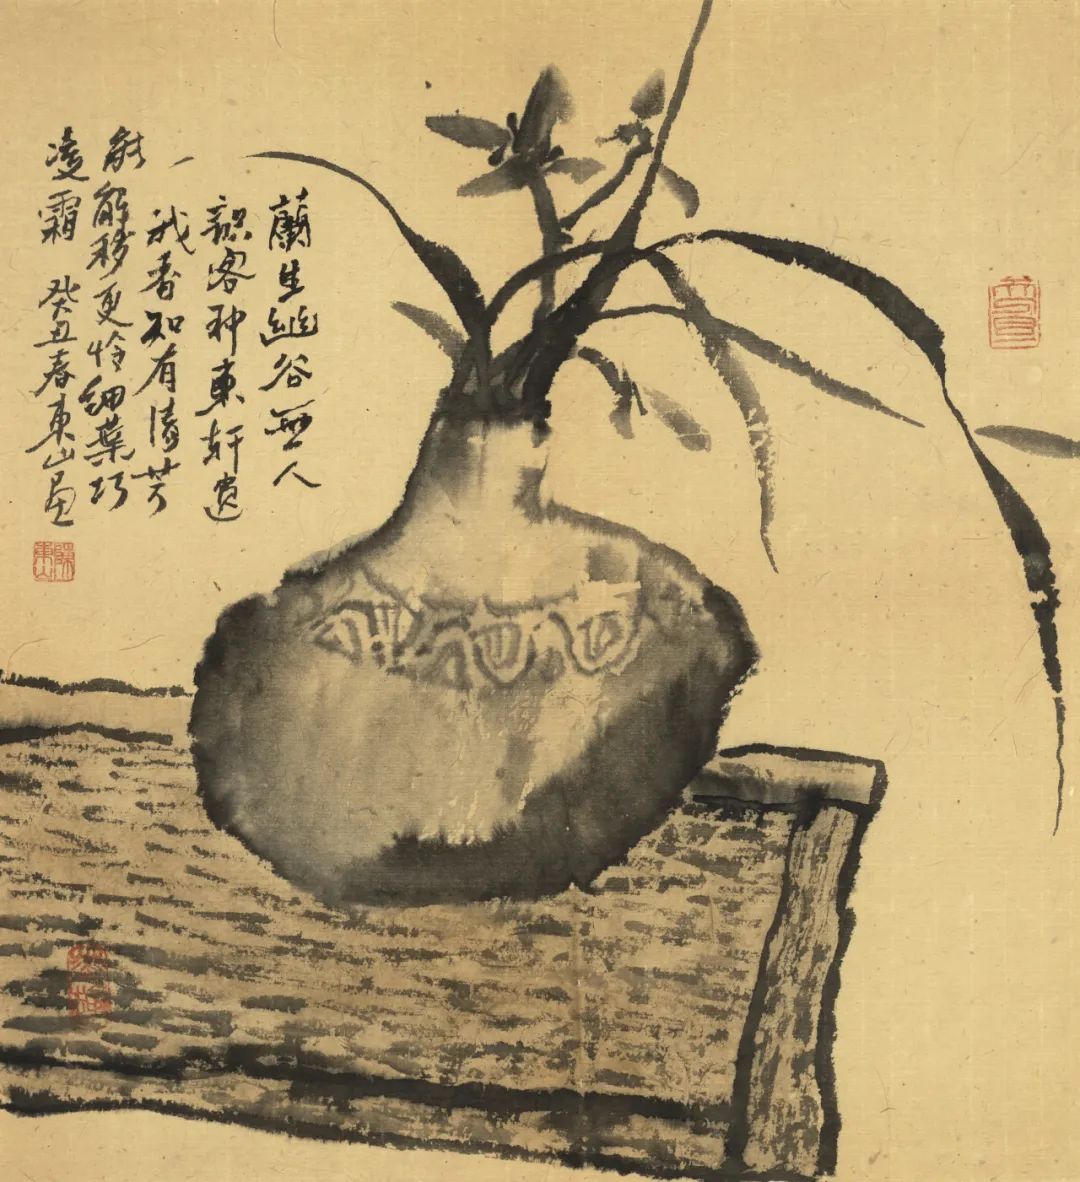 蘭生幽谷無人
識客种東軒遺
我香知有清芬
能解移更怜細葉巧
凌霜 癸丑春東山畫